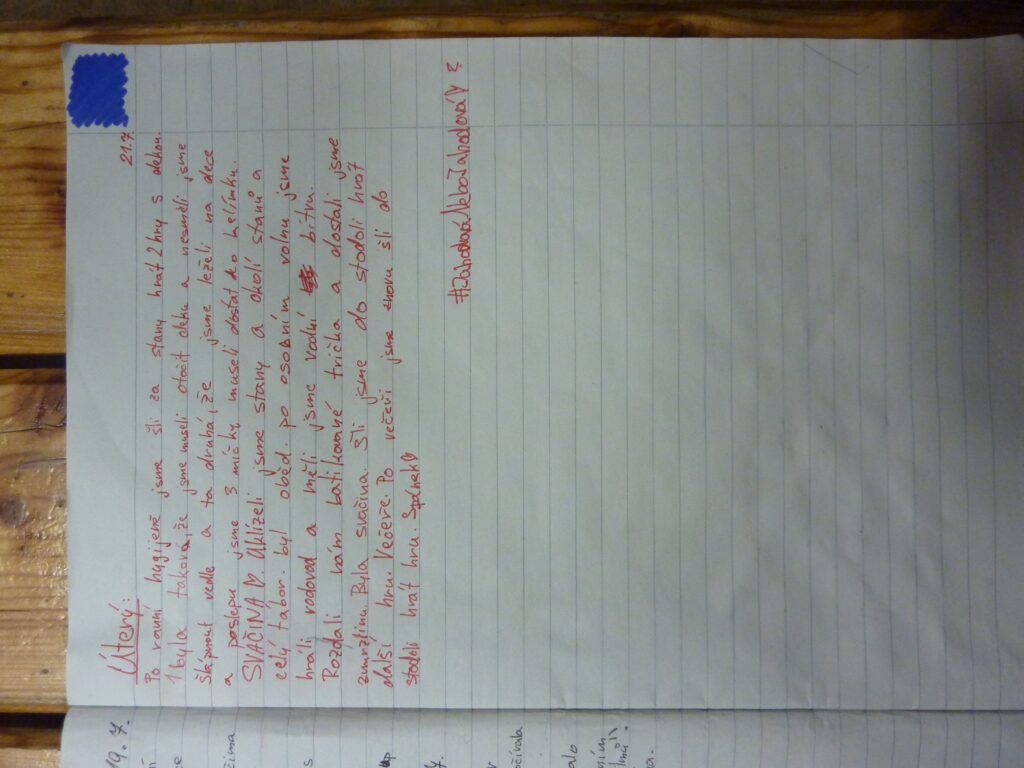 Úterý: 21.7
Po ranní hygijeně jsme šli za stany hrát 2 hry s dekou.
1 byla taková, že jsme museli otočit deku a nesměli jsme
šlápnout vedle a ta druhá, že jsme leželi na dece
a poslepu jsme 3 míčky museli dostat do kelímku.
SVAČINA ♡. Uklízeli jsme stany a okolí stanů a
celý tábor. byl oběd. po osobním volnu jsme
hráli vodovod a měli jsme vodní bitvu.
Rozdali nám batikované trička a dostali jsme
zmrzlinu. Byla svačina. Šli jsme do stodoli hrát
další hru. Večeře. Po večeři jsme znovu šli do
stodoli hrát hru. Spánek♡
19. 7.
7.
s